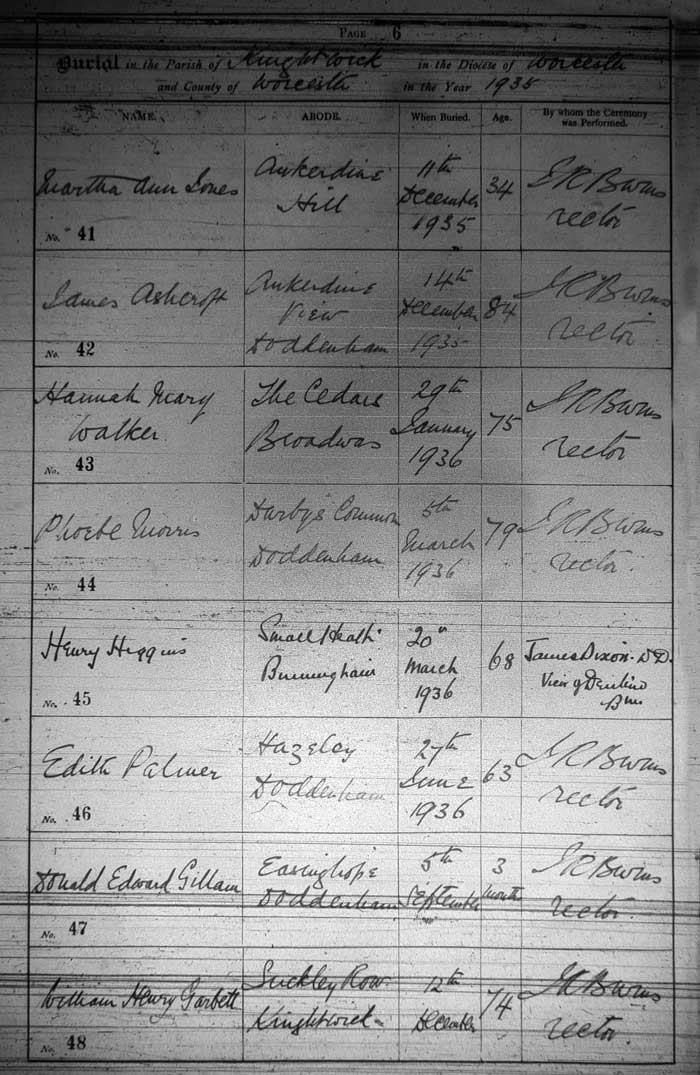 PAGE 6
Burial in the Parish of Knightwick in the Diocese of Worcester
and County of Worcester in the Year 1935
NAME. ABODE. When Buried. Age. By whom the Ceremony was Performed.
Martha Ann Jones
No. 41
Ankerdine
Hill
11th
December
1935
34
rector
James Ashcroft
No. 42
Ankerdine
View
Doddenham
14th
December
1935
84
rector
Hannah Mary
Walker.
No. 43
The Cedars
Broadwas
29th
January
1936
75
rector
Phoebe Morris
No. 44
Darbys Common
Doddenham
5th
March
1936
79
rector.
Henry Higgins
No. 45
Small Heath
Birmingham
20th
March
1936
68
James Dixon. D.D.
Edith Palmer
No. 46
Hazeley
Doddenham
27th
June
1936
63
rector
Donald Edward Gillam
No. 47
Easinghope
Doddenham
5th
September
3
month
rector.
William Henry Garbett
No. 48
Suckley Row
Knightwick
12th
December
74
rector.